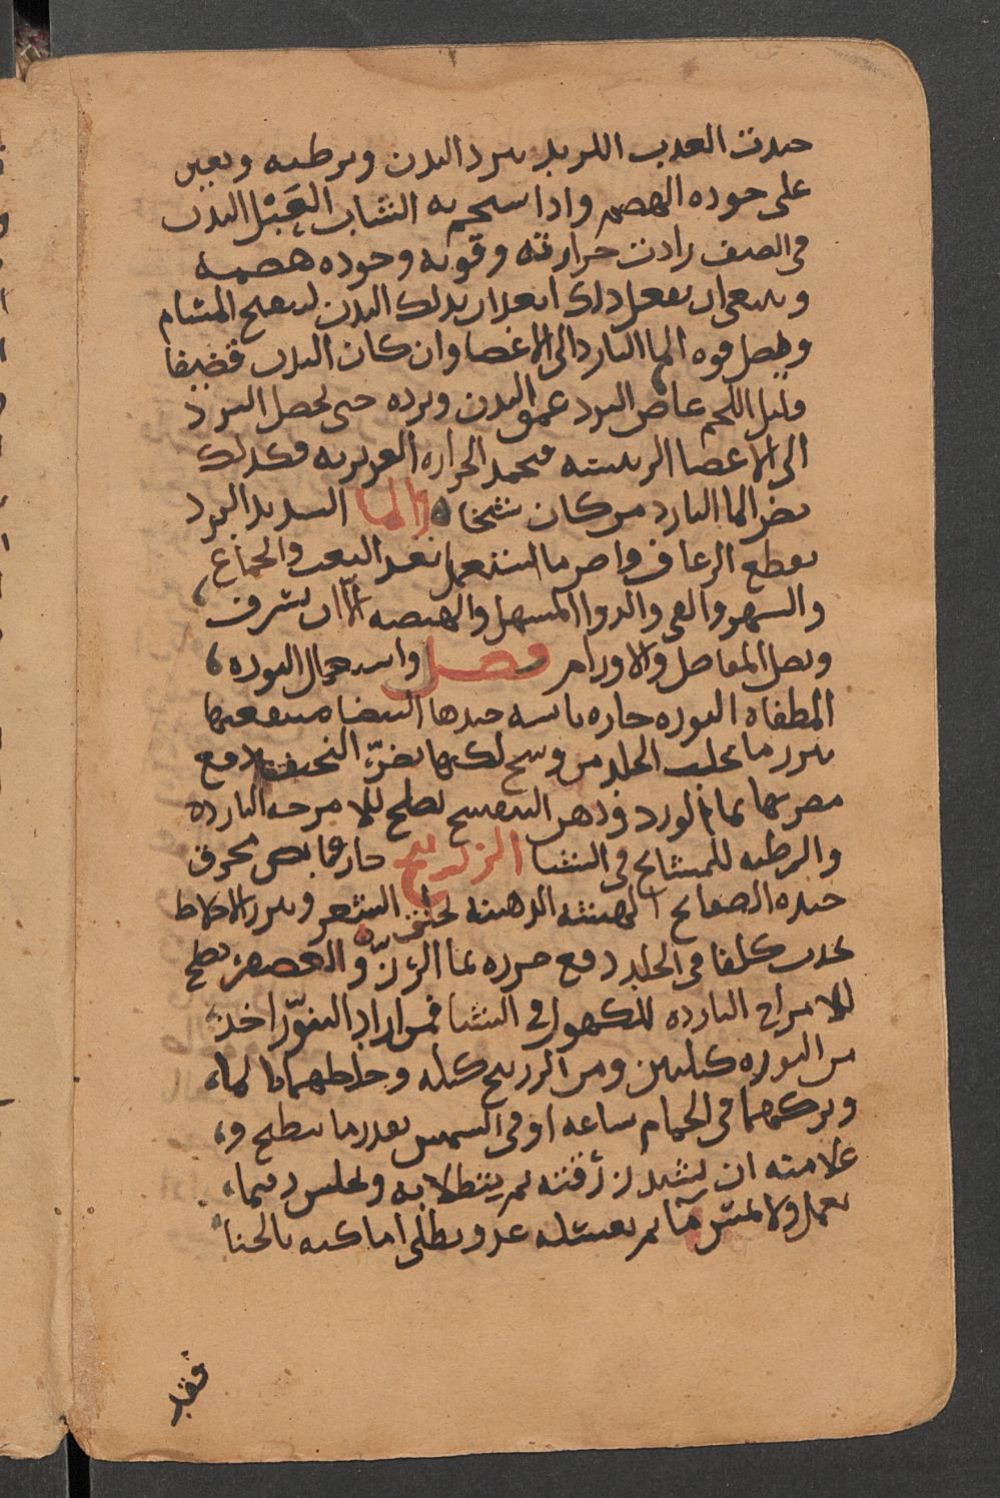 حيدة العذب اللذيذ يبرد البدن ويرطبه ويعين
على جوده الهضم واذا استحم به الشاب العَبْل البدن
فى الصيف زادت حرارته وقوته وجوده هضمه
وينبغى ان يفعل ذلك بعد ان يدلك البدن لتنفتح المسام
ويصل قوه الما البارد الى الاعضا وان كان البدن قضيفا
قليل اللحم غاص البرد عمق البدن وبرده حتى يحصل البرد
الى الاعضا الرييسه فيخمد الحراره الغريزيه وكذلك
يضر الما البارد من كان شيخا والما الشديد البرد
يقطع الرعاف واضر ما استعمل بعد التعب والجماع
والسهر والقى والدوا المسهل والهيضه الا ان يشرف
وتصل المفاصل والاورام فصل واستعمال النوره
المطفاه النوره حاره يابسه جيدها البيضا منفعتها
تبرز ما تحت الجلد من وسخ لكنها تضرّ النحيف دفع
مضرتها بما الورد ودهن البنفسج تصلح للامزجه البارده
والرطبه للمشايخ فى الشتا الزرنيخ حار قابض محرق
جيده الصفايح الهشه الذهبيه يحلق الشعر ويبرز الاخلاط
يحدث كلفا فى الجلد دفع ضرره بما الرزّ والعصفر يصلح
للامزاج البارده للكهول فى الشتا فمن اراد التنوّر اخذ
من النوره كيلين ومن الزرنيخ كيله وخلطهما بالما
وتركهما فى الحمام ساعه او فى الشمس بقدر ما ينطبخ و
علامته ان يشتد زرقته ثم يتطلا به ويجلس ريثما
يعمل ولا يمس ما ثم يغسله عنه ويطلى اماكنه بالحنا
فقد